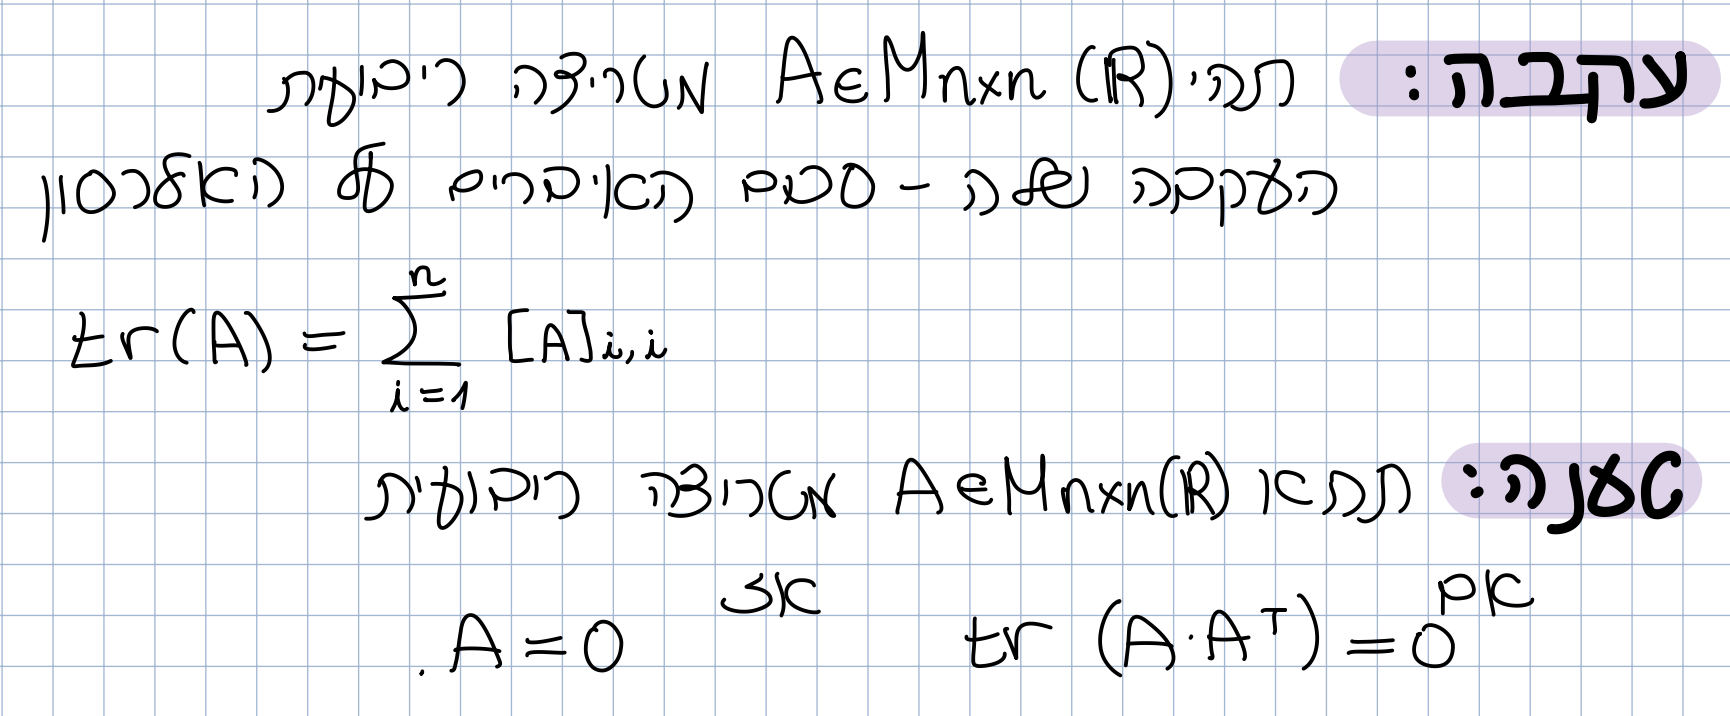 עקבה: תהי A∈Mnxn (ℝ) מטריצה ריבועית
העקבה שלה - סכום האיברים על האלכסון
tr(A) = ∑_{i=1}^{n} [A]i,i
טענה: תהא A∈Mnxn(ℝ) מטריצה ריבועית
אם tr (A·Aᵀ) = 0 אז A = 0.